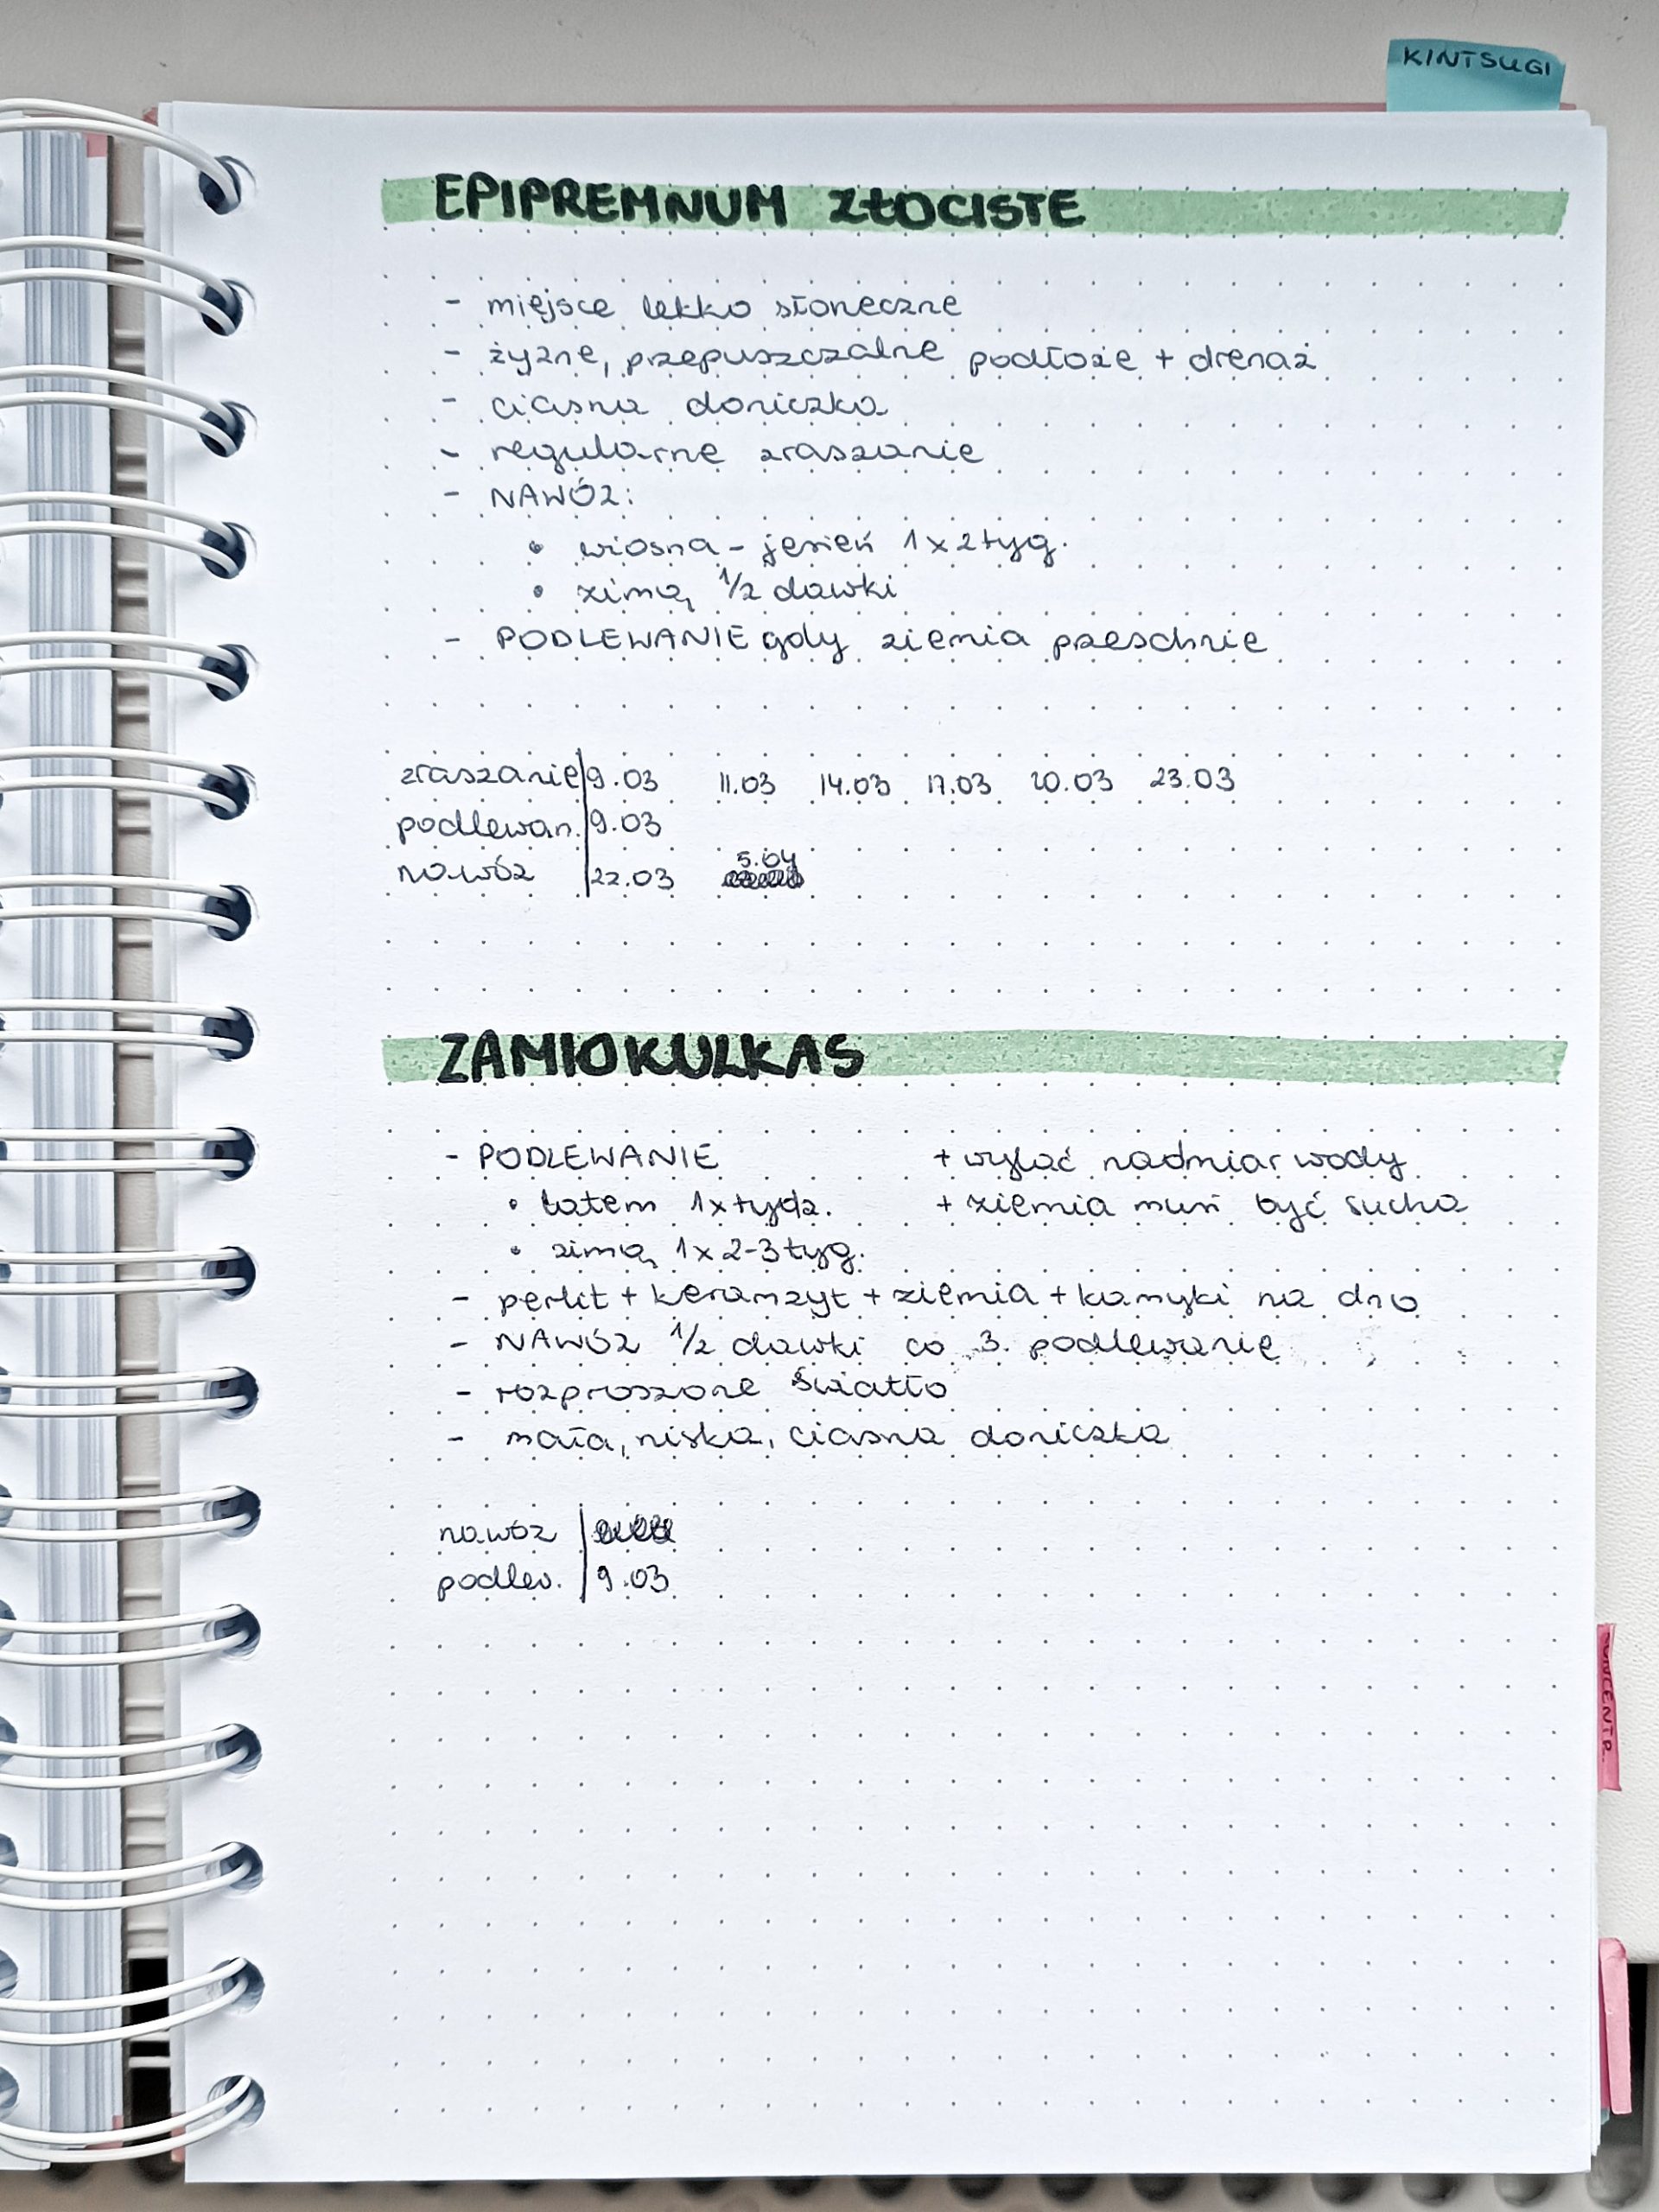 KINTSUGI
EPIPREMNUM ZŁOCISTE
- miejsce lekko słoneczne
- żyzne, przepuszczalne podłoże + drenaż
- ciasna doniczka
- regularne zraszanie
- NAWÓZ:
• wiosna - jesień 1x2tyg.
• zimą 1/2 dawki
- PODLEWANIE gdy ziemia przeschnie
zraszanie 9.03 11.03 14.03 17.03 20.03 23.03
podlewan. 9.03
5.04
nawóz 22.03
ZAMIOKULKAS
- PODLEWANIE + wylać nadmiar wody
• latem 1x tydz. + ziemia musi być sucha
• zimą 1x2-3tyg.
- perlit + keramzyt + ziemia + kamyki na dno
- NAWÓZ 1/2 dawki co 3. podlewanie
- rozproszone światło
- mała, niska, ciasna doniczka
nawóz
podlew. 9.03